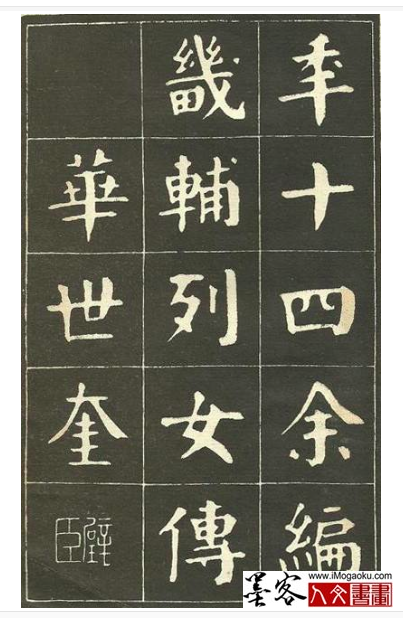 年十四余編
畿輔列女傳
華世奎
璧臣
墨客
www.iMogaoku.com
人文書畫